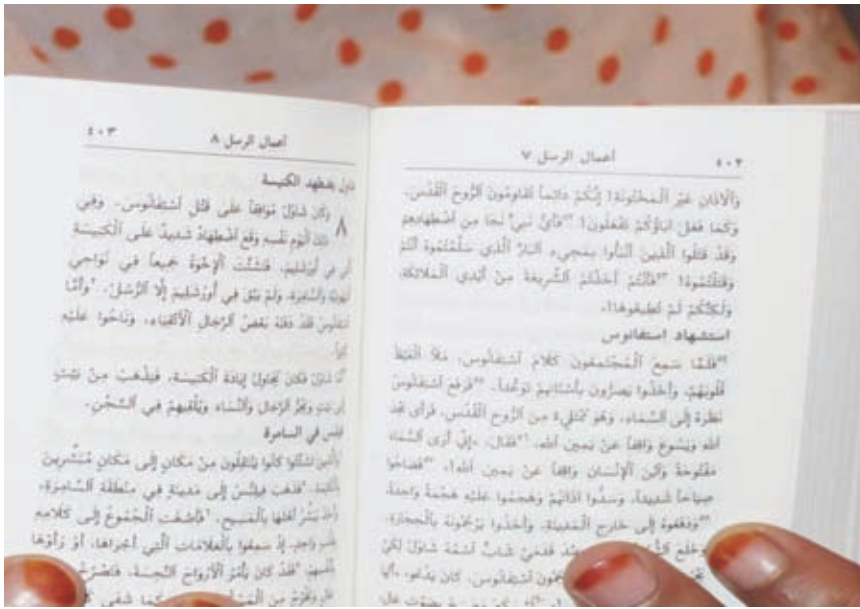 ٤٠٢
أعمال الرسل ٧
وَالْآذَانِ غَيْرِ ٱلْمَخْتُونَةِ! إِنَّكُمْ دَائِماً تُقَاوِمُونَ ٱلرُّوحَ ٱلْقُدُسَ.
وَكَمَا فَعَلَ آبَاؤُكُمْ تَفْعَلُونَ! فَأَيُّ نَبِيٍّ نَجَا مِنِ ٱضْطِهَادِهِمْ
وَقَدْ قَتَلُوا ٱلَّذِينَ أَنْبَأُوا بِمَجِيءِ ٱلْبَارِّ ٱلَّذِي سَلَّمْتُمُوهُ أَنْتُمْ
وَقَتَلْتُمُوهُ! فَأَنْتُمْ أَخَذْتُمُ ٱلشَّرِيعَةَ مِنْ أَيْدِي ٱلْمَلَائِكَةِ،
وَلَكِنَّكُمْ لَمْ تُطِيعُوهَا!».
استشهاد استفانوس
فَلَمَّا سَمِعَ ٱلْمُجْتَمِعُونَ كَلَامَ ٱسْتِفَانُوسَ، مَلَأَ ٱلْغَيْظُ
قُلُوبَهُمْ، وَأَخَذُوا يَصِرُّونَ بِأَسْنَانِهِمْ تَوَعُّداً. فَرَفَعَ ٱسْتِفَانُوسُ
نَظَرَهُ إِلَى ٱلسَّمَاءِ، وَهُوَ مُمْتَلِيءٌ مِنَ ٱلرُّوحِ ٱلْقُدُسِ، فَرَأَى مَجْدَ
ٱللهِ وَيَسُوعَ وَاقِفاً عَنْ يَمِينِ ٱللهِ. فَقَالَ: «إِنِّي أَرَى ٱلسَّمَاءَ
مَفْتُوحَةً وَٱبْنَ ٱلْإِنْسَانِ وَاقِفاً عَنْ يَمِينِ ٱللهِ!». فَصَاحُوا
صِيَاحاً شَدِيداً، وَسَدُّوا آذَانَهُمْ وَهَجَمُوا عَلَيْهِ هَجْمَةً وَاحِدَةً،
وَدَفَعُوهُ إِلَى خَارِجِ ٱلْمَدِينَةِ، وَأَخَذُوا يَرْجُمُونَهُ بِٱلْحِجَارَةِ.
وَخَلَعَ شَابٍّ ٱسْمُهُ شَاوُلُ لِكَيْ
ٱسْتِفَانُوسَ، كَانَ يَدْعُو:
٤٠٣
أعمال الرسل ٨
شاول يضطهد الكنيسة
٨ وَكَانَ شَاوُلُ مُوَافِقاً عَلَى قَتْلِ ٱسْتِفَانُوسَ. وَفِي
ذَلِكَ ٱلْيَوْمِ نَفْسِهِ وَقَعَ ٱضْطِهَادٌ شَدِيدٌ عَلَى ٱلْكَنِيسَةِ
ٱلَّتِي فِي أُورُشَلِيمَ. فَتَشَتَّتَ ٱلْإِخْوَةُ جَمِيعاً فِي نَوَاحِي
ٱلْيَهُودِيَّةِ وَٱلسَّامِرَةِ، وَلَمْ يَبْقَ فِي أُورُشَلِيمَ إِلَّا ٱلرُّسُلُ. وَأَمَّا
ٱسْتِفَانُوسُ فَقَدْ دَفَنَهُ بَعْضُ ٱلرِّجَالِ ٱلْأَتْقِيَاءِ، وَنَاحُوا عَلَيْهِ
كَثِيراً.
أَمَّا شَاوُلُ فَكَانَ يُحَاوِلُ إِبَادَةَ ٱلْكَنِيسَةِ، فَيَذْهَبُ مِنْ بَيْتٍ
إِلَى بَيْتٍ وَيَجُرُّ ٱلرِّجَالَ وَٱلنِّسَاءَ وَيُلْقِيهِمْ فِي ٱلسِّجْنِ.
فيلبس في السامرة
وَٱلَّذِينَ تَشَتَّتُوا كَانُوا يَنْتَقِلُونَ مِنْ مَكَانٍ إِلَى مَكَانٍ مُبَشِّرِينَ
بِٱلْكَلِمَةِ. فَذَهَبَ فِيلِبُّسُ إِلَى مَدِينَةٍ فِي مِنْطَقَةِ ٱلسَّامِرَةِ،
وَأَخَذَ يُبَشِّرُ أَهْلَهَا بِٱلْمَسِيحِ. فَأَصْغَتِ ٱلْجُمُوعُ إِلَى كَلَامِهِ
بِقَلْبٍ وَاحِدٍ، إِذْ سَمِعُوا بِٱلْعَلَامَاتِ ٱلَّتِي أَجْرَاهَا، أَوْ رَأَوْهَا
بِأَنْفُسِهِمْ. فَقَدْ كَانَ يَأْمُرُ ٱلْأَرْوَاحَ ٱلنَّجِسَةَ،
كَمَا شَفَى